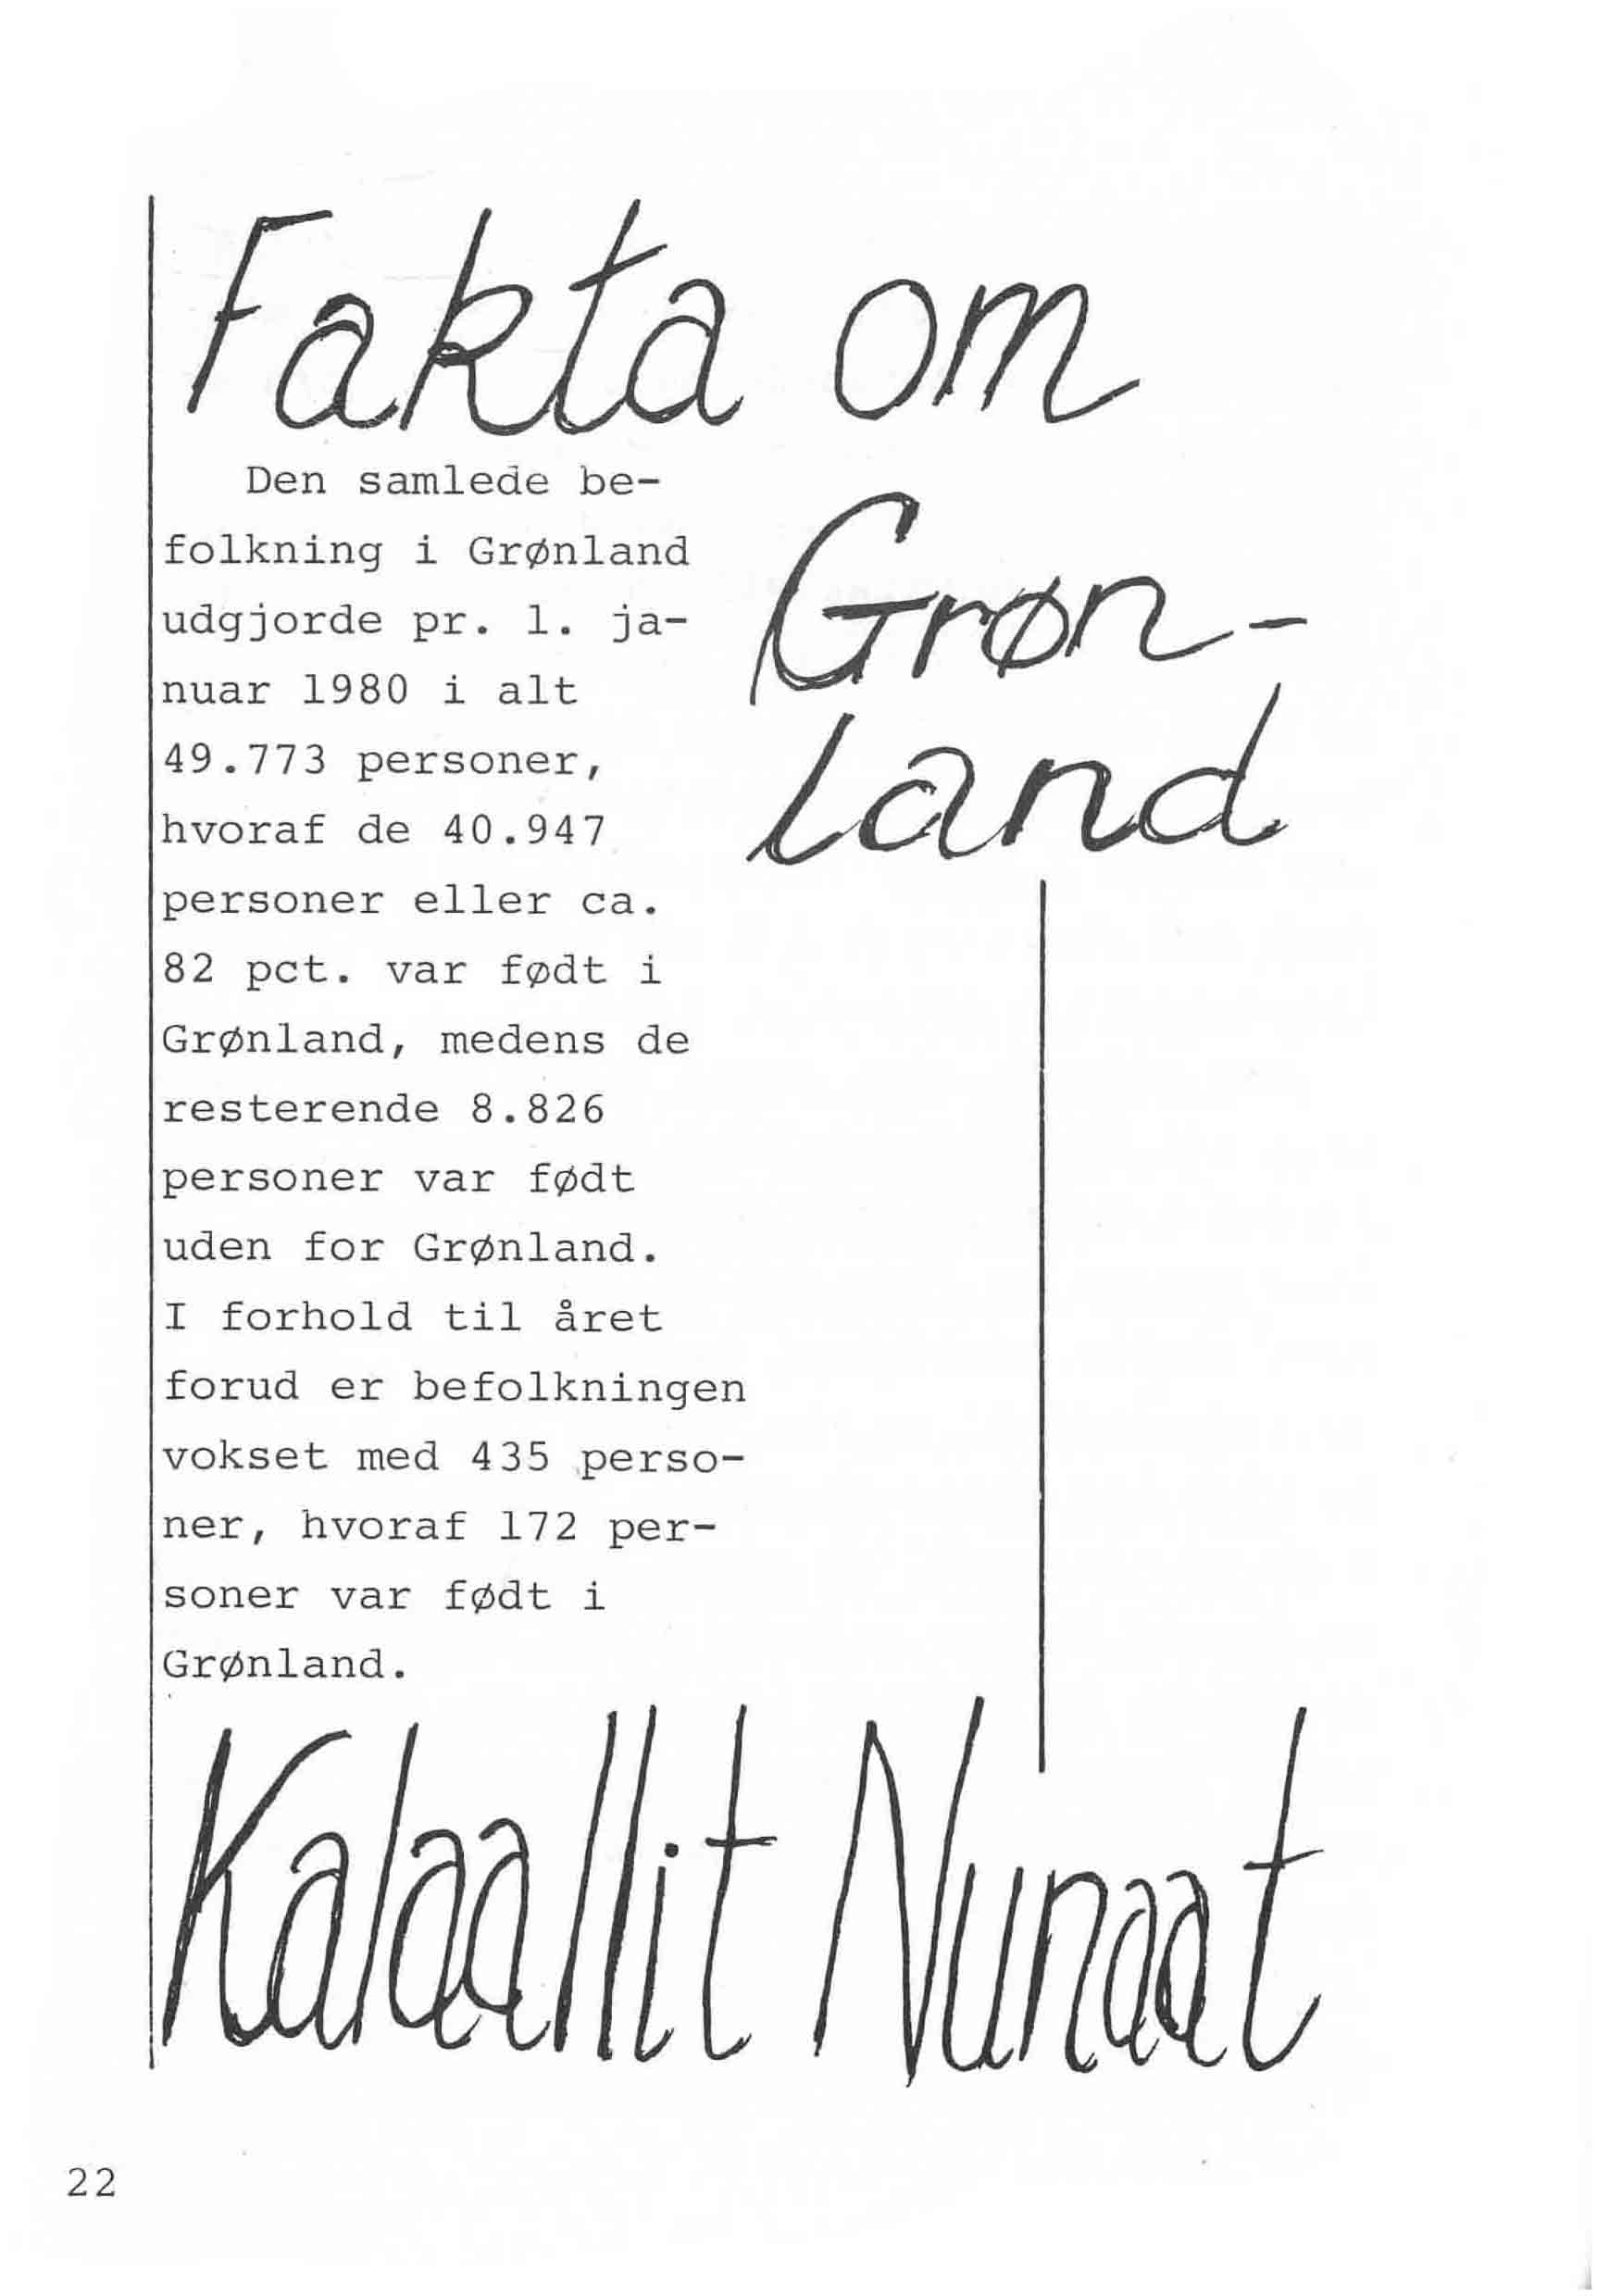 Fakta om
Grøn-
land
Den samlede be-
folkning i Grønland
udgjorde pr. 1. ja-
nuar 1980 i alt
49.773 personer,
hvoraf de 40.947
personer eller ca.
82 pct. var født i
Grønland, medens de
resterende 8.826
personer var født
uden for Grønland.
I forhold til året
forud er befolkningen
vokset med 435 perso-
ner, hvoraf 172 per-
soner var født i
Grønland.
Kalaallit Nunaat
22